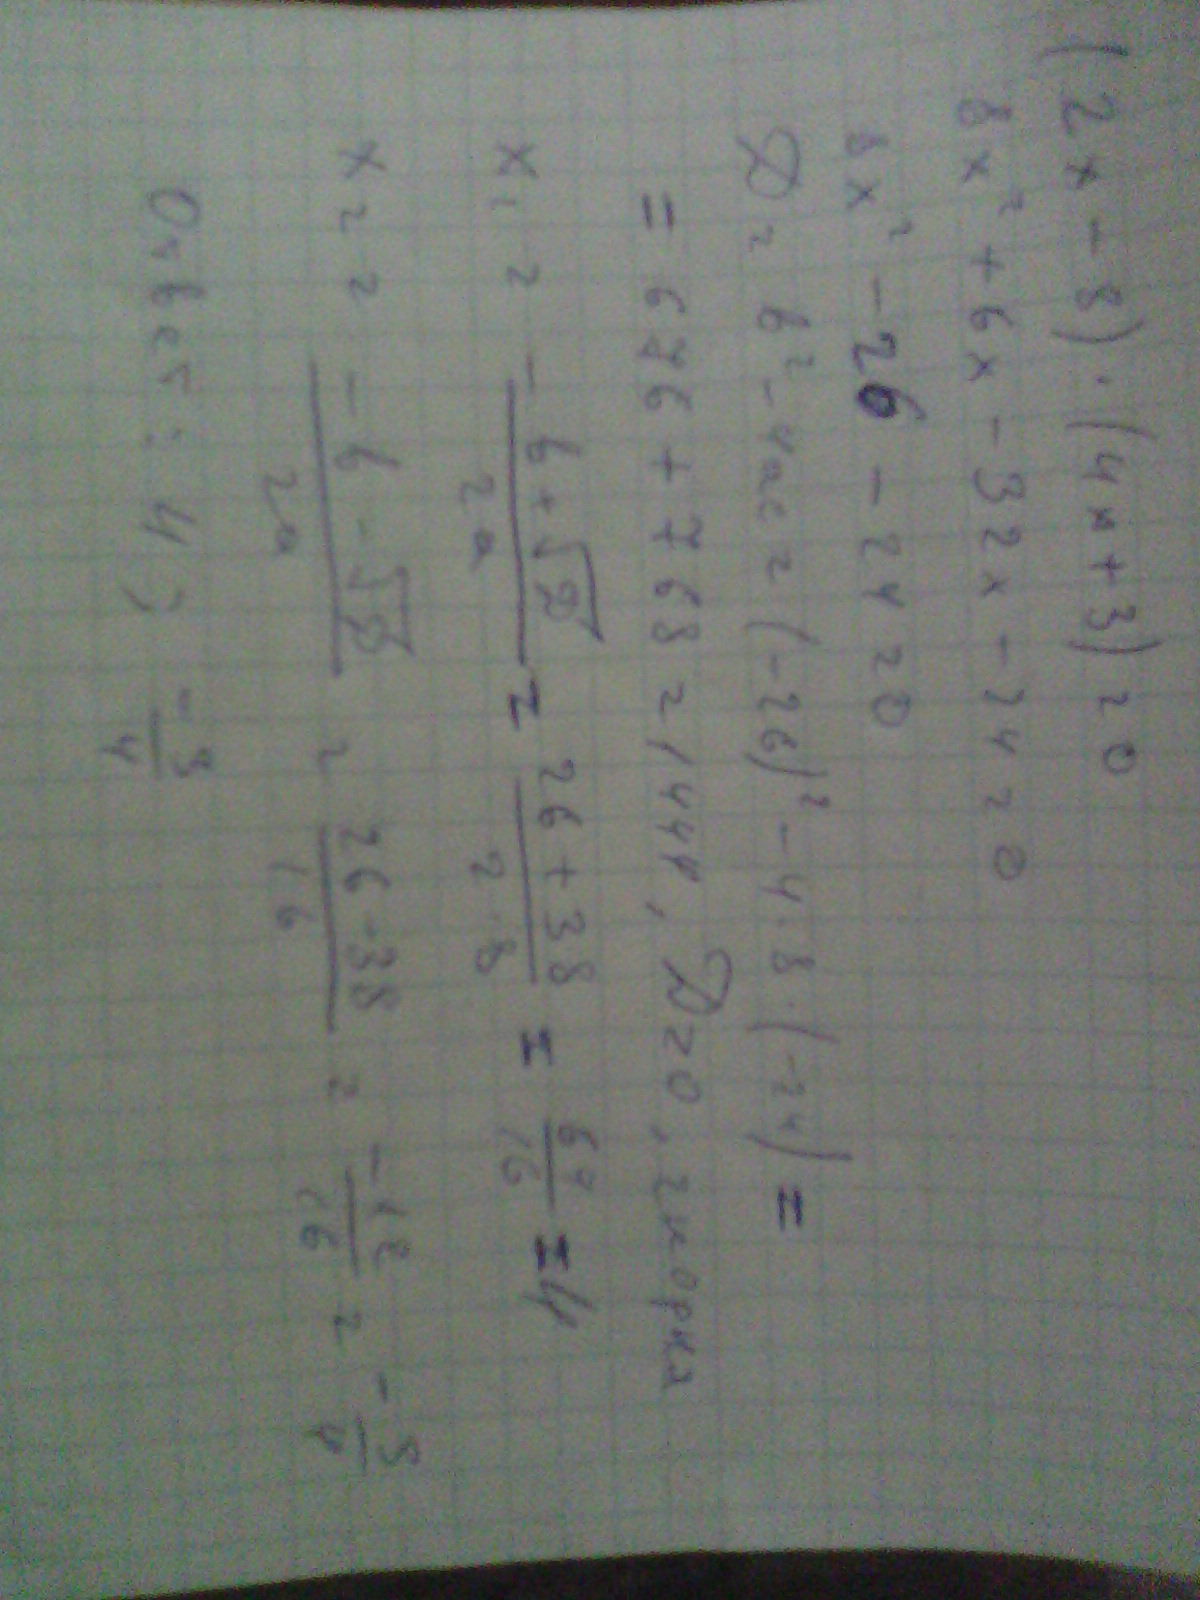 (2x-8)·(4x+3)=0
8x²+6x-32x-24=0
8x²-26-24=0
D=b²-4ac=(-26)²-4·8·(-24)=
=676+768=1444, D>0, 2 корня
x₁=\frac{-b+√D}{2a}=\frac{26+38}{2·8}=\frac{64}{16}=4
x₂=\frac{-b-√D}{2a}=\frac{26-38}{16}=\frac{-12}{16}=-\frac{3}{4}
Ответ: 4; -\frac{3}{4}